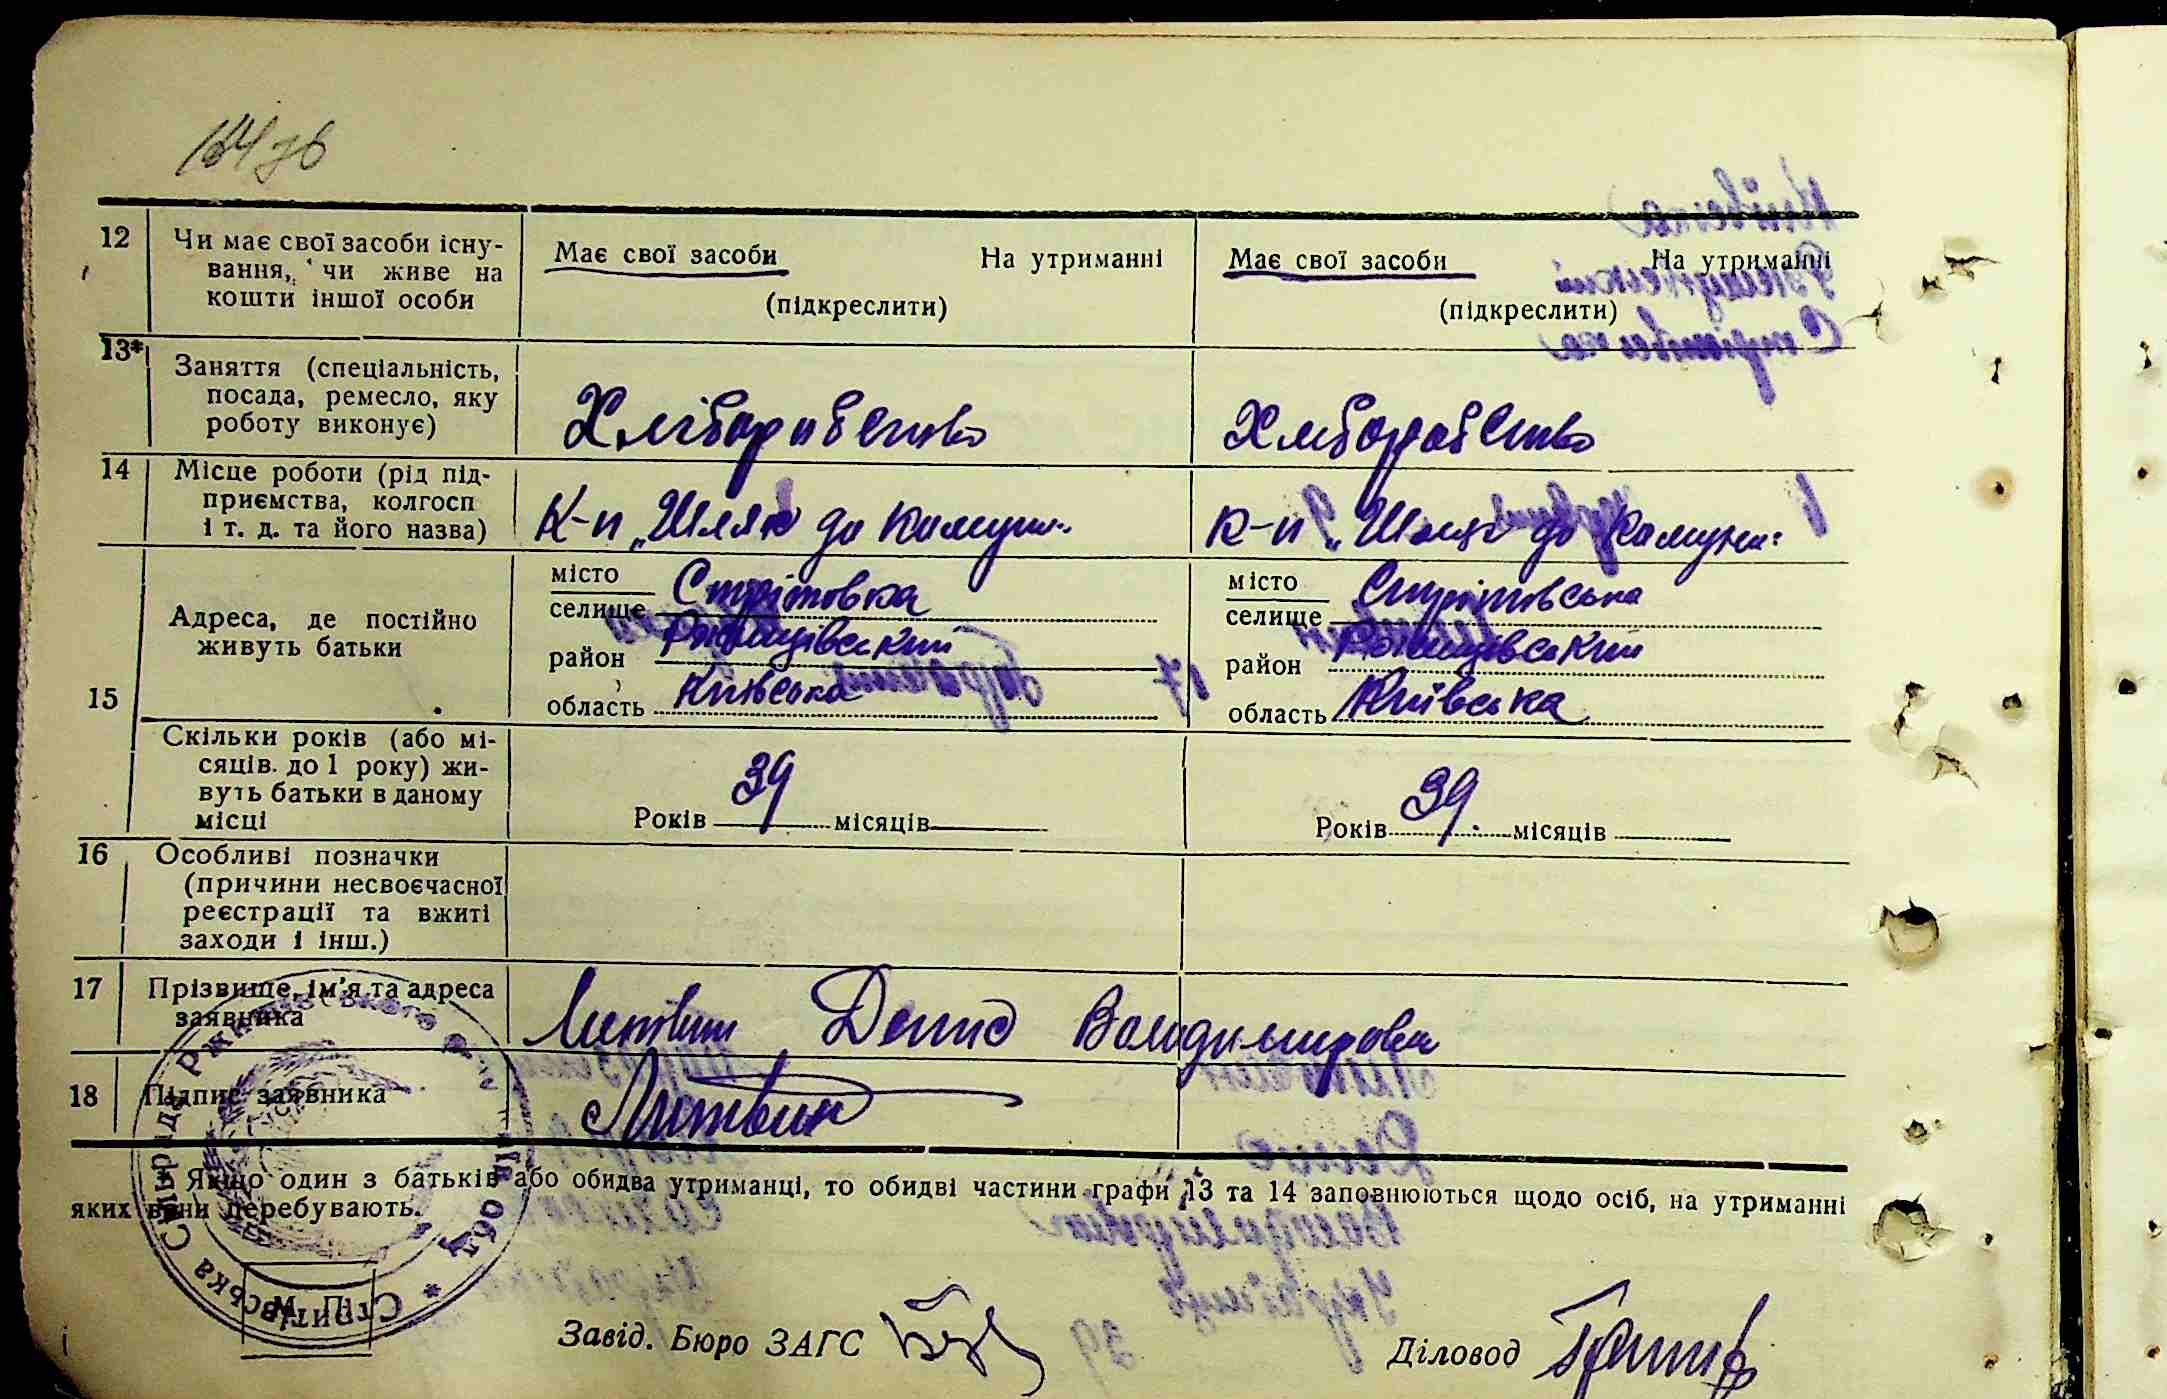 12
Чи має свої засоби існу-
вання, чи живе на
кошти іншої особи
Має свої засоби На утриманні
(підкреслити)
Має свої засоби На утриманні
(підкреслити)
13*
Заняття (спеціальність,
посада, ремесло, яку
роботу виконує)
Хліборобство
Хліборобство
14
Місце роботи (рід під-
приємства, колгосп
і т. д. та його назва)
К-п „Шлях до комуни"
к-п „Шлях до комуни"
15
Адреса, де постійно
живуть батьки
місто
селище Стрітовка
район Ржищівський
область Київська
місто
селище Стрітовська
район Ржищівський
область Київська
Скільки років (або мі-
сяців до 1 року) жи-
вуть батьки в даному
місці
Років 39 місяців
Років 39. місяців
16
Особливі позначки
(причини несвоєчасної
реєстрації та вжиті
заходи і інш.)
17
Прізвище, ім'я та адреса
заявника
Литвин Денис Володимирович
18
Підпис заявника
Литвин
* Якщо один з батьків або обидва утриманці, то обидві частини графи 13 та 14 заповнюються щодо осіб, на утриманні
яких вони перебувають.
М. П.
Завід. Бюро ЗАГС
Діловод